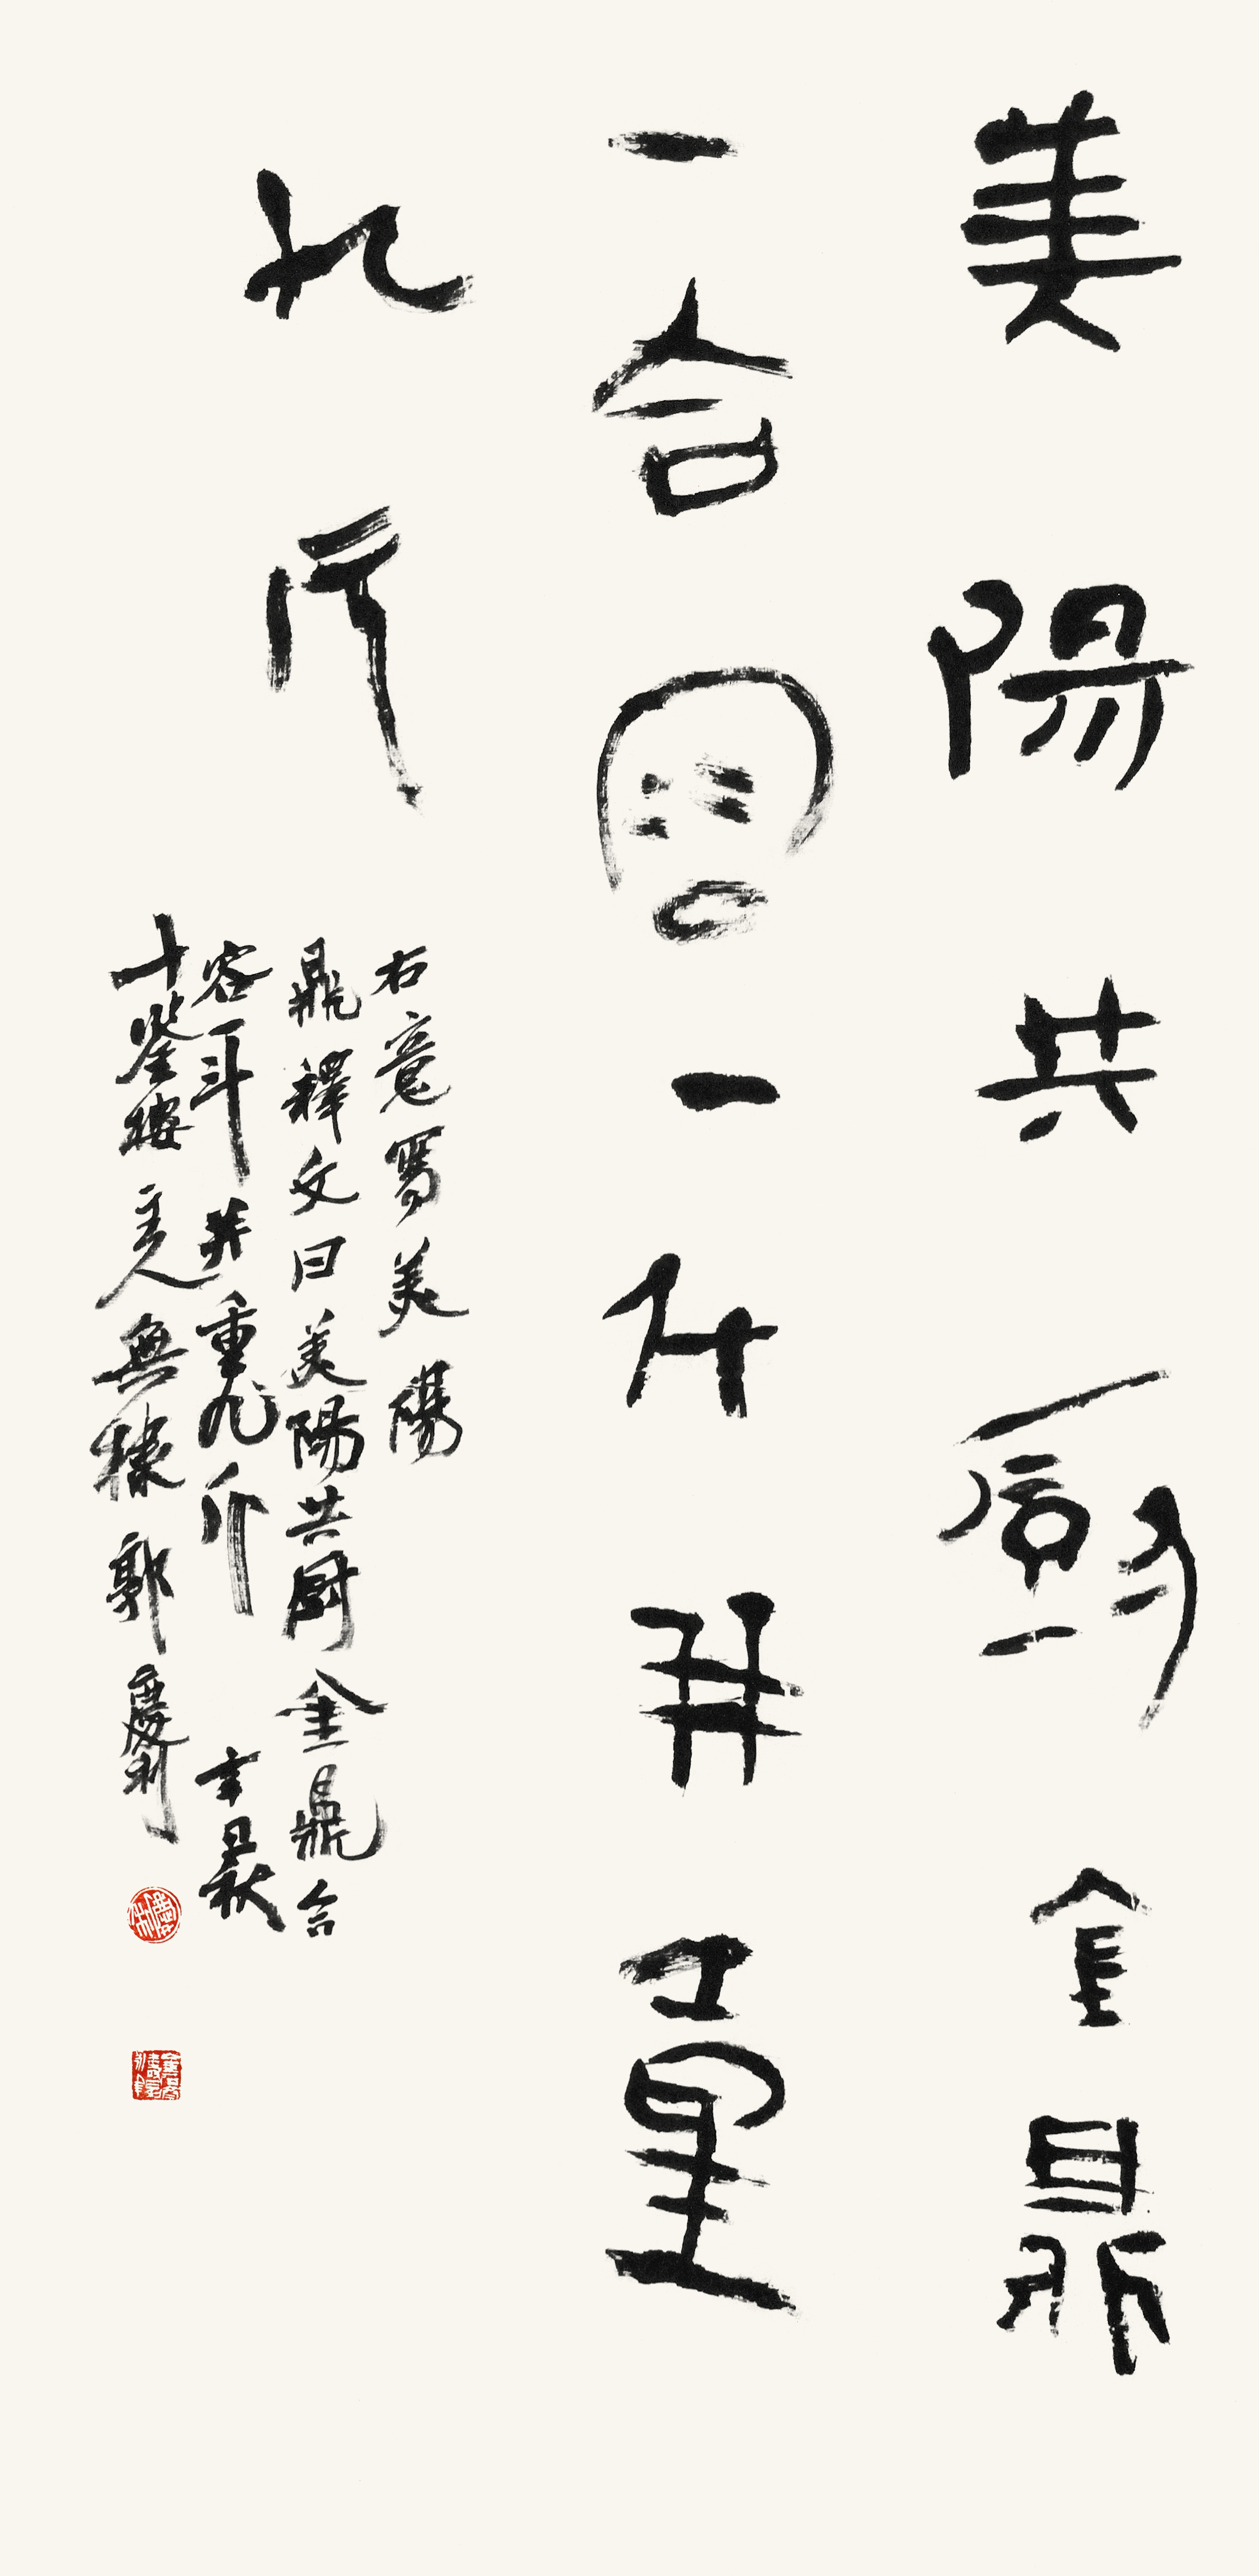 美陽共廚金鼎
一合容一斗并重
九斤
右意寫美陽
鼎釋文曰美陽共厨金鼎合
容一斗并重九斤辛丑秋
十樓主人無棣郭慶利